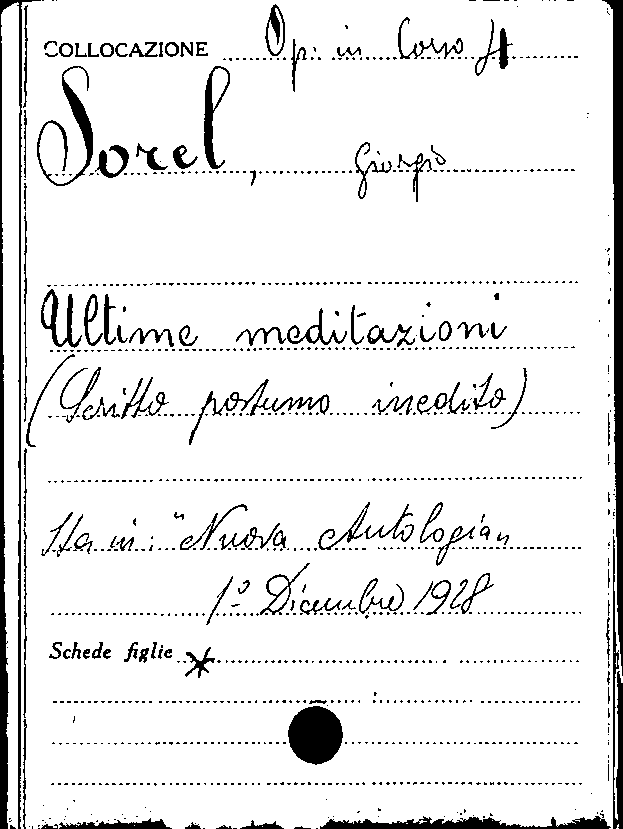 COLLOCAZIONE Op: in Corso 4
Sorel, Giorgio
Ultime meditazioni
(Scritto postumo inedito)
Sta in: "Nuova Antologia"
1º Dicembre 1928
Schede figlie *